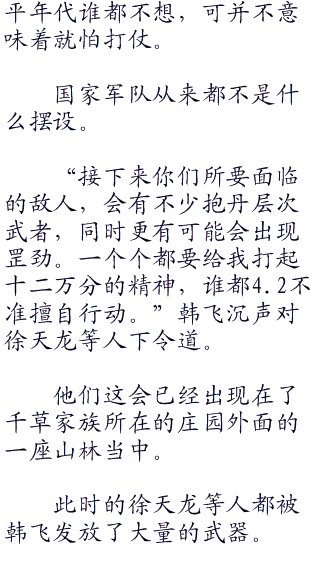 平年代谁都不想，可并不意
味着就怕打仗。
国家军队从来都不是什
么摆设。
“接下来你们所要面临
的敌人，会有不少抱丹层次
武者，同时更有可能会出现
罡劲。一个个都要给我打起
十二万分的精神，谁都4.2不
准擅自行动。”韩飞沉声对
徐天龙等人下令道。
他们这会已经出现在了
千草家族所在的庄园外面的
一座山林当中。
此时的徐天龙等人都被
韩飞发放了大量的武器。